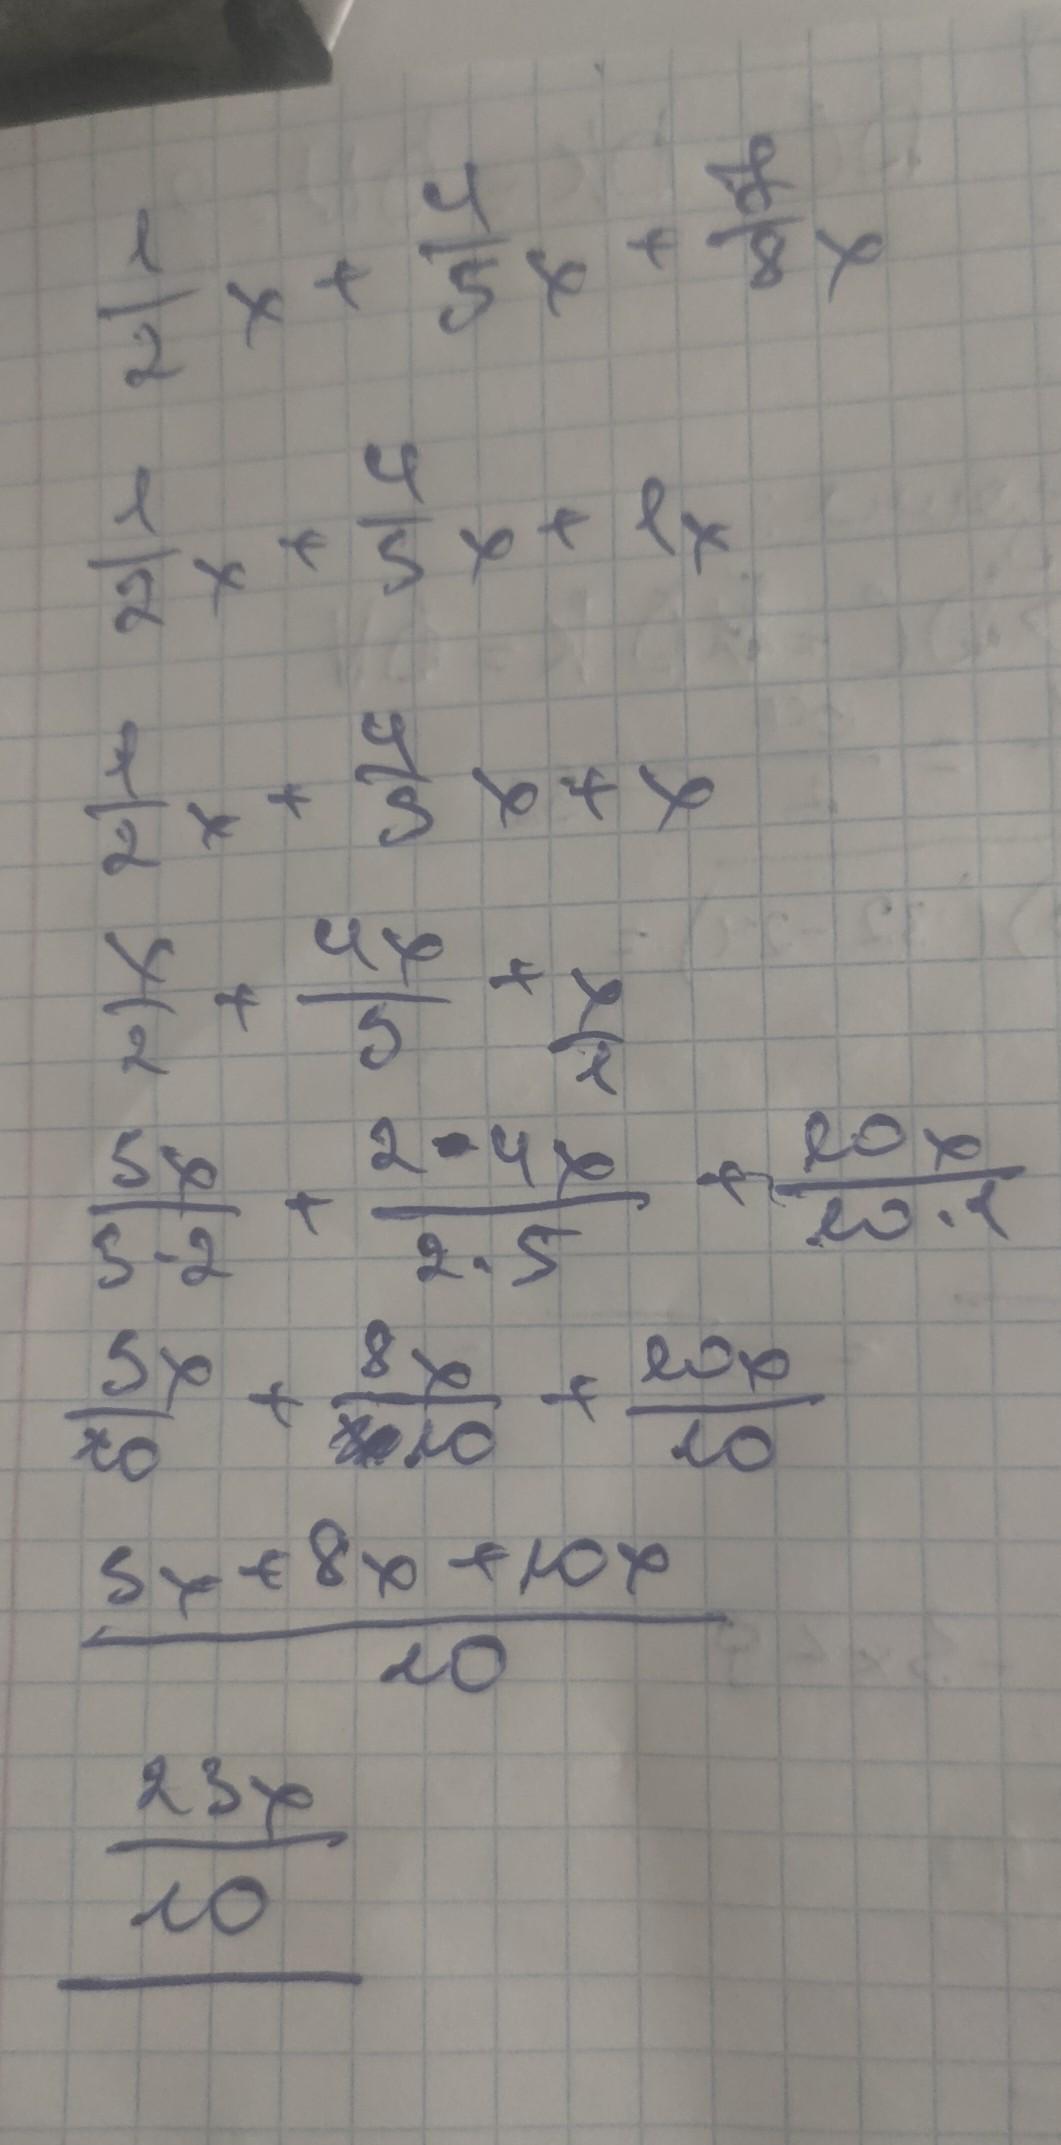 1/2 x + 4/5 x + 8/8 x
1/2 x + 4/5 x + 1x
1/2 x + 4/5 x + x
x/2 + 4x/5 + x/1
5x/5·2 + 2·4x/2·5 + 10x/10·1
5x/10 + 8x/10 + 10x/10
5x + 8x + 10x/10
23x/10